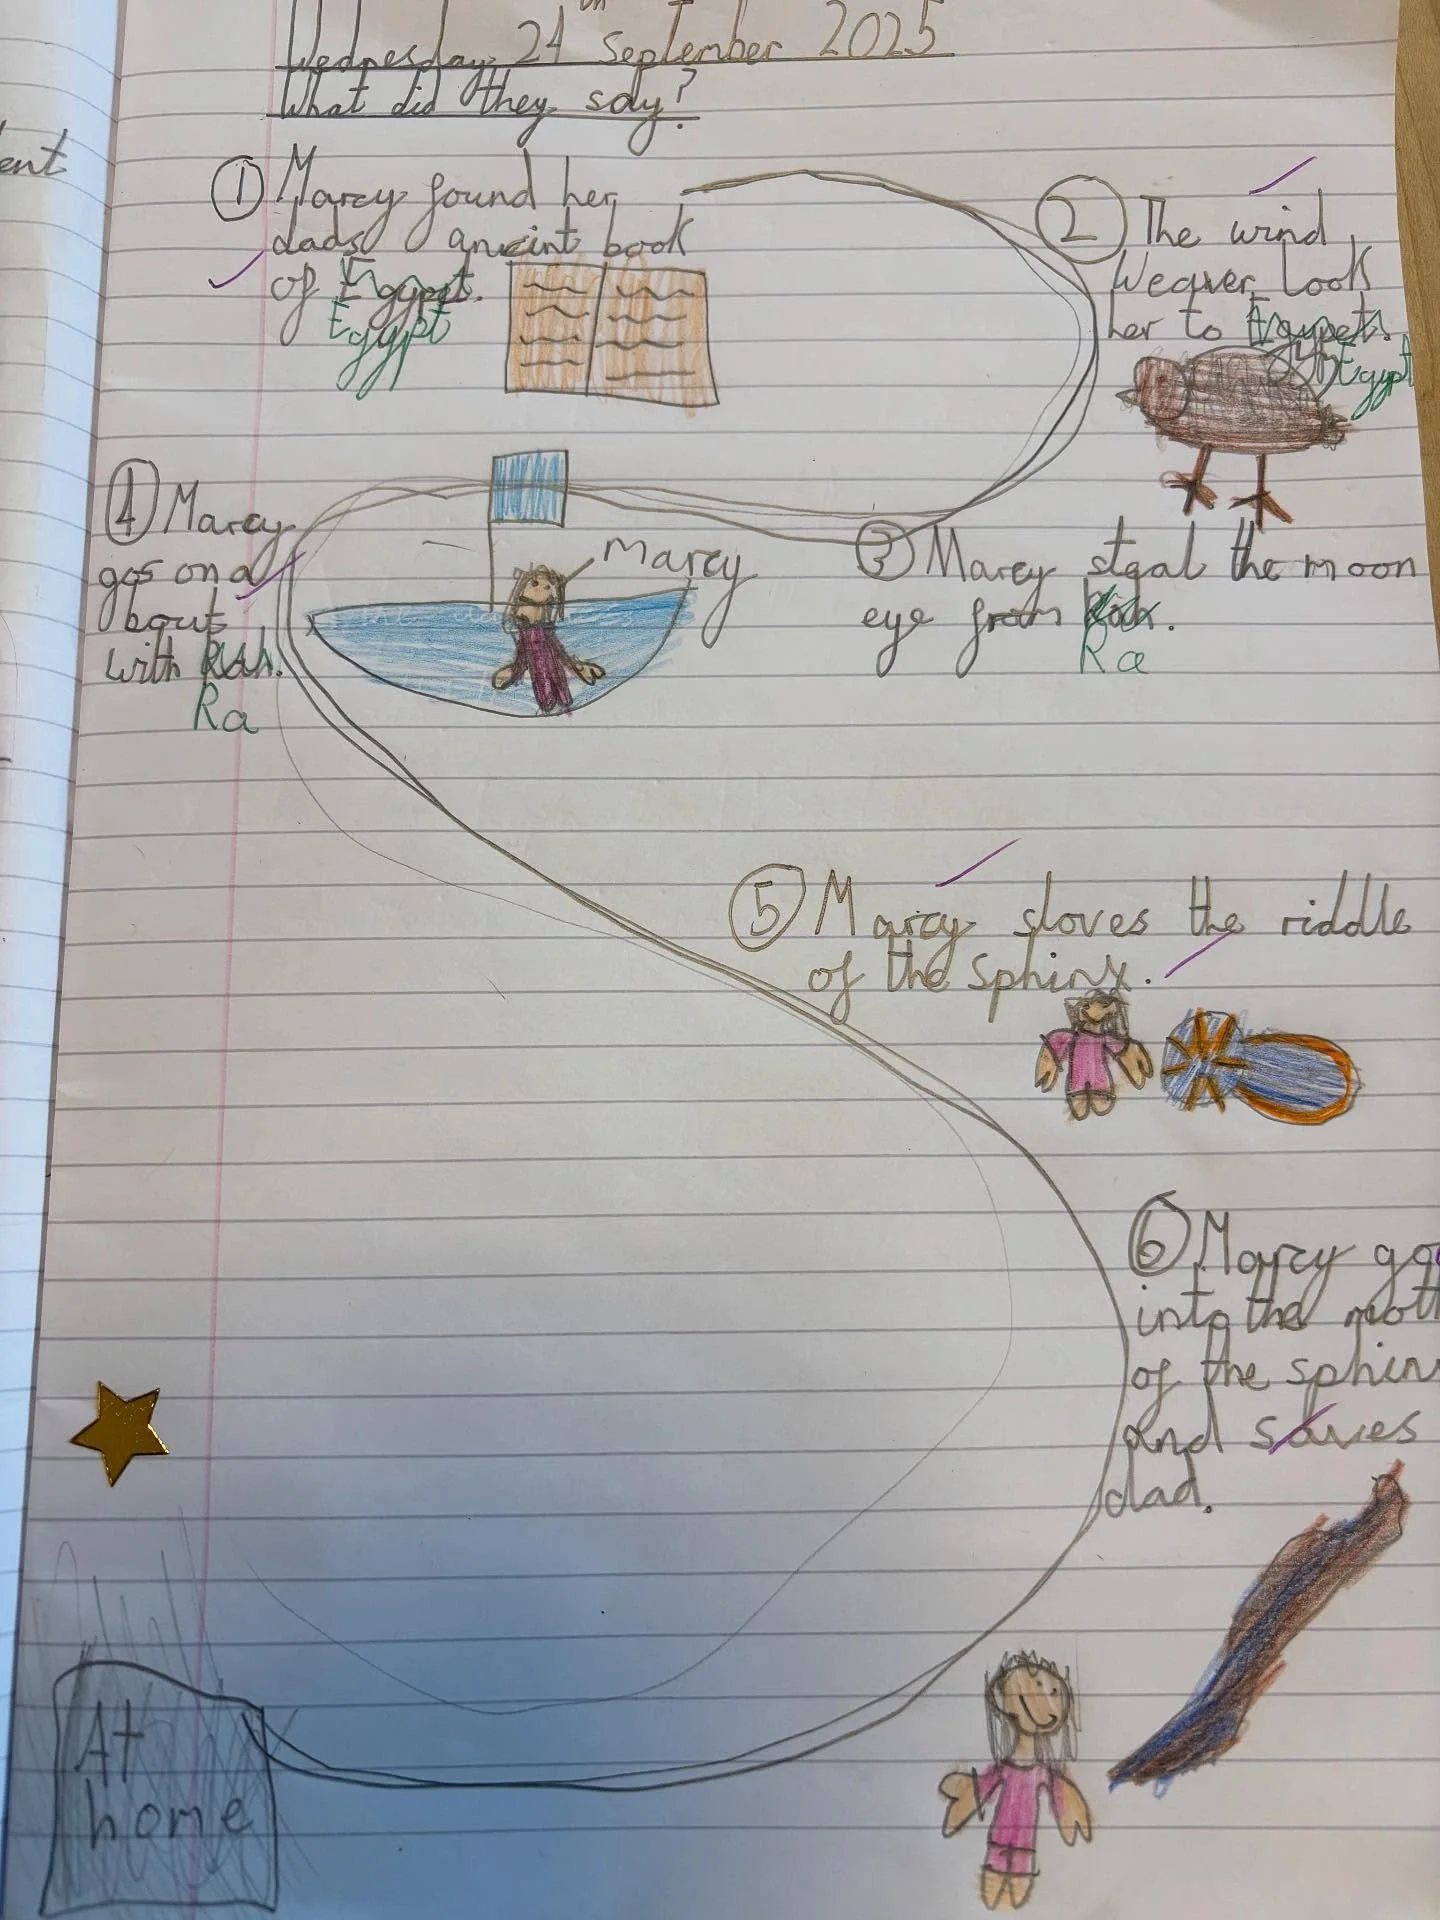 Wednesday 24th September 2025
What did they say?
1 Marcy found her
dads ancint book
of Egypet.
Egypt
2 The wind
Weaver Look
her to Egypet.
Egypt
3 Marcy steal the moon
eye from
Ra
4 Marcy
gos on a
bout
with Rah.
Ra
Marcy
5 Marcy sloves the riddle
of the sphinx.
6 Marcy go
into the mott
of the sphin
and saves
dad.
At
home
ent